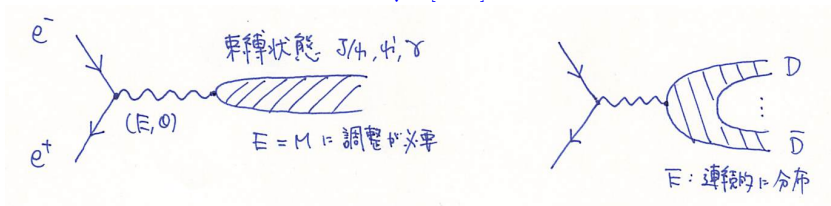 e⁻
束縛状態 J/ψ, ψ', γ
(E, 0)
E = M に調整が必要
e⁺
D
⋮
D̄
E : 連続的に分布